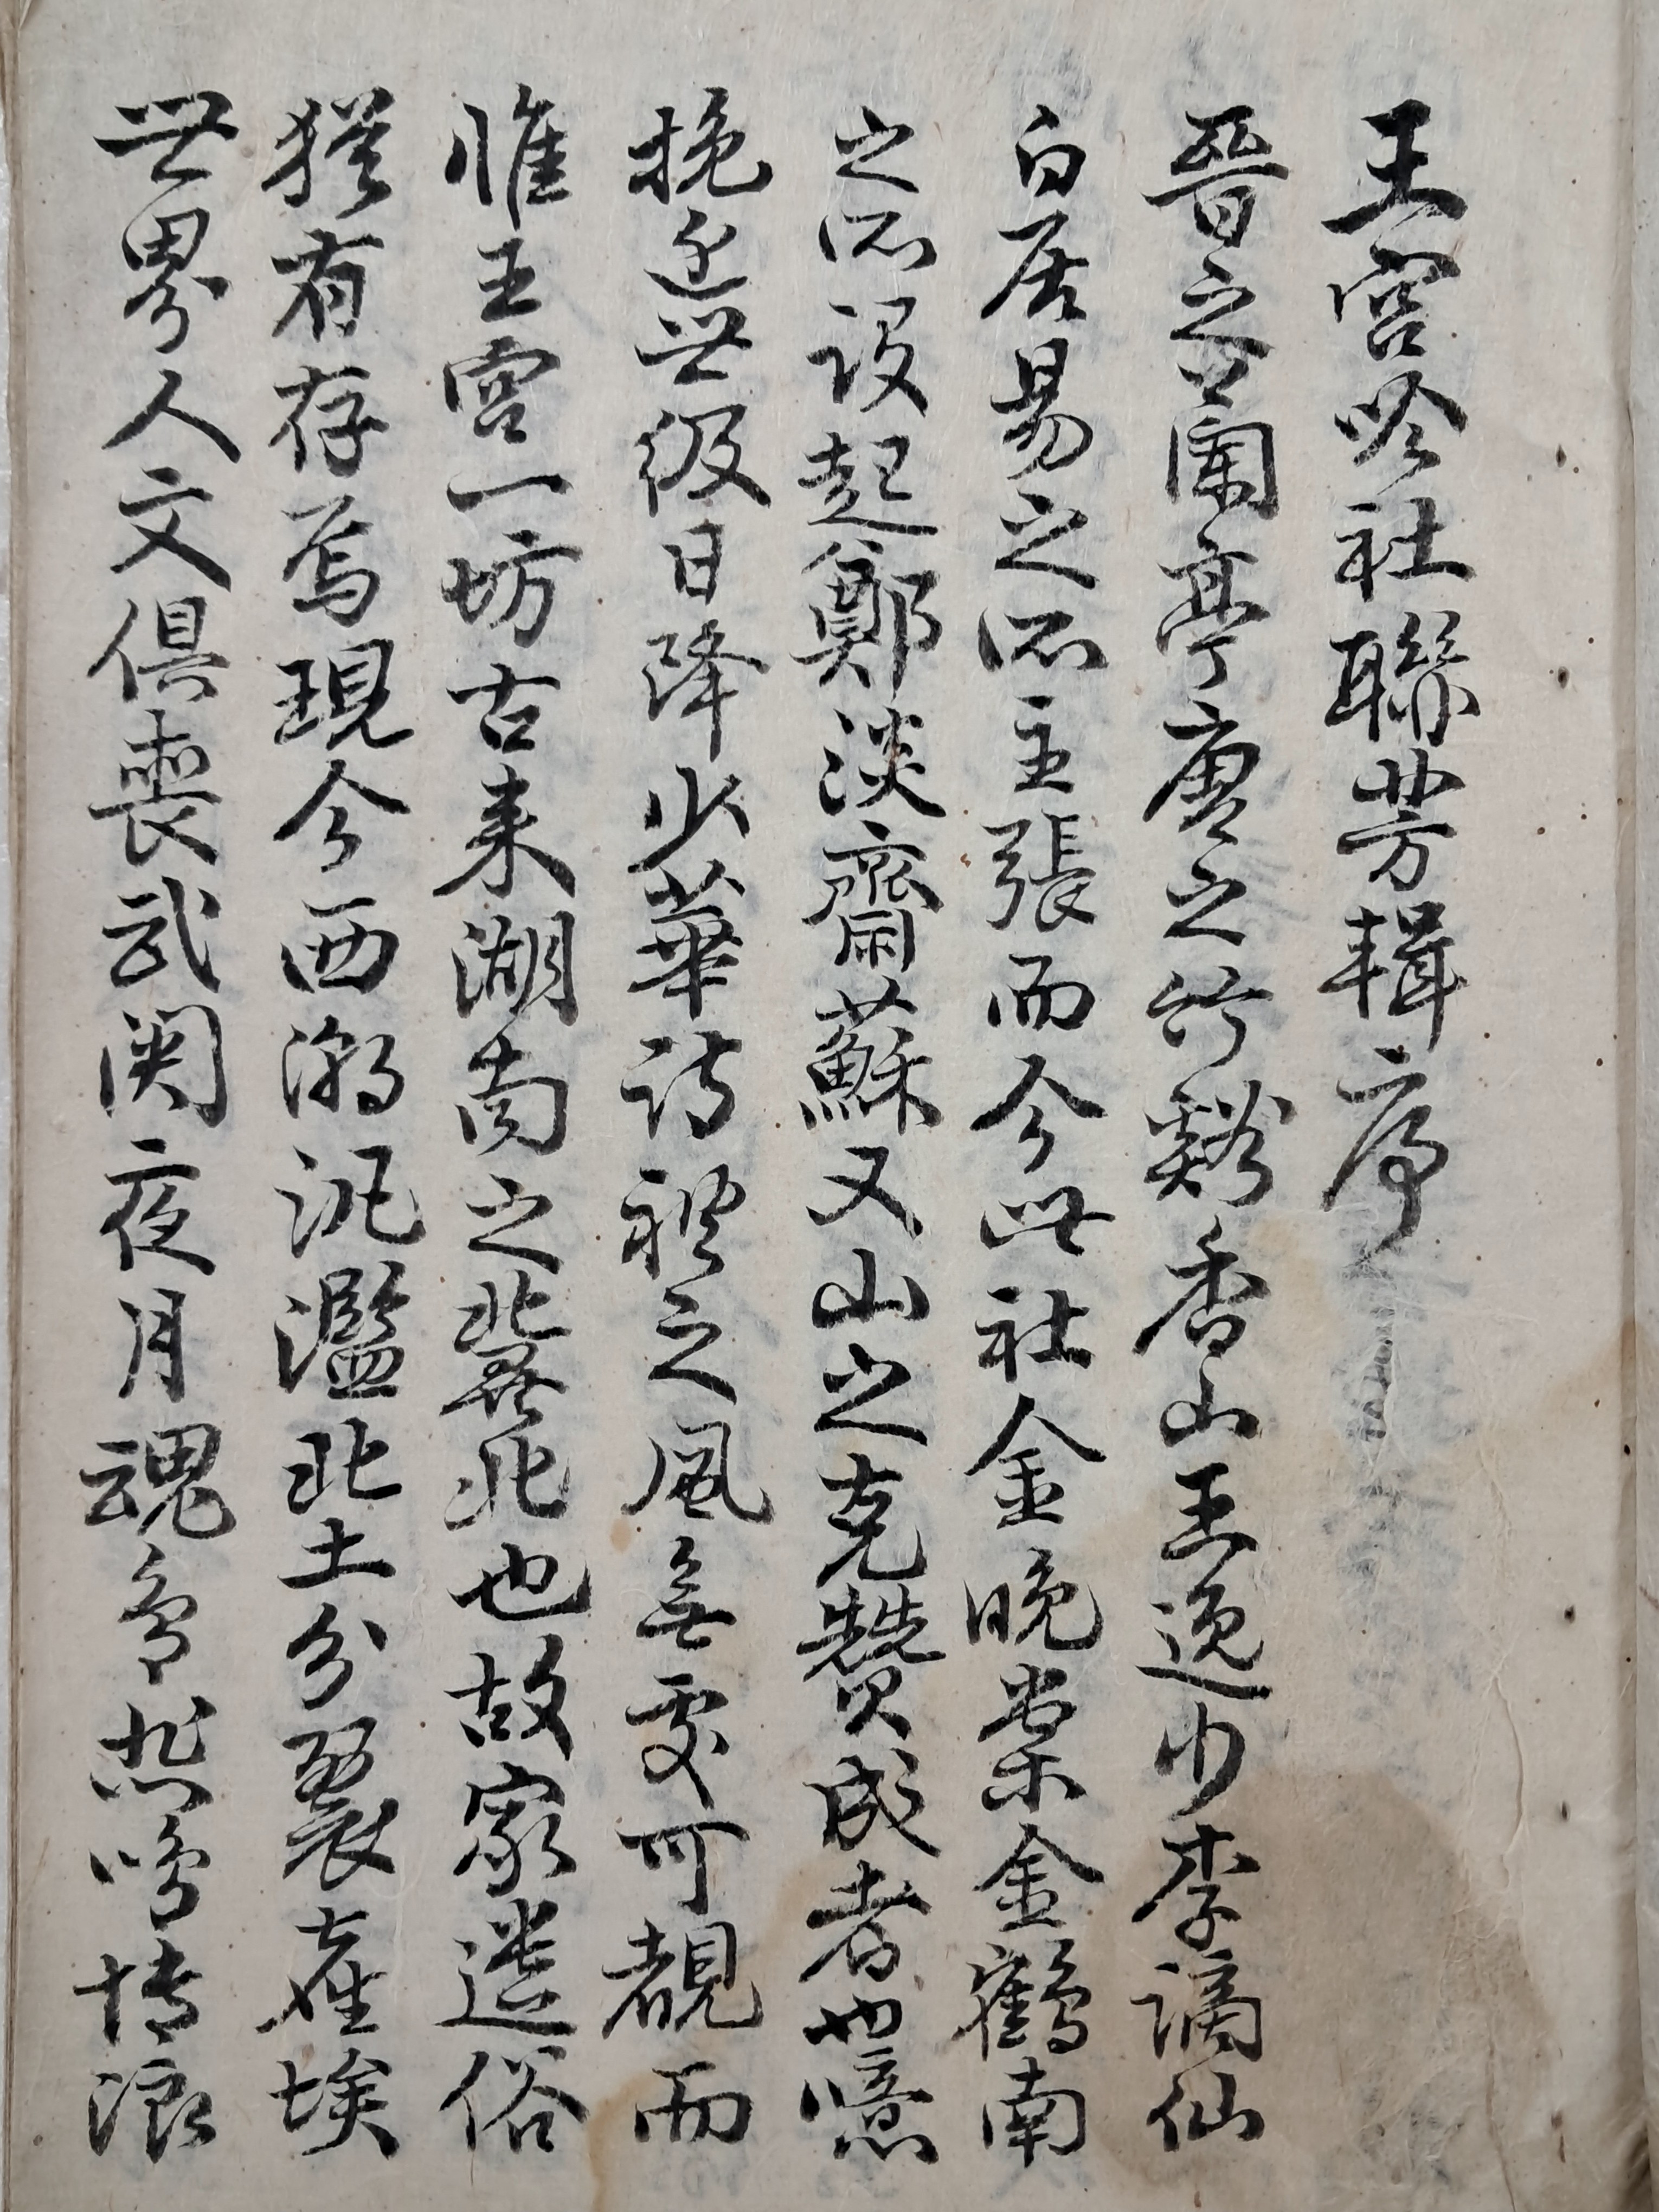 王宮吟社聯芳輯序
晉之蘭亭唐之竹谿香山王逸少李謫仙
白居易之所主張而今此社金晩棠金鶴南
之所設起鄭淡齋蘇又山之克贊成者也噫
挽近世級日降少華詩禮之風無處可覩而
惟王宮一坊古来湖南之冀北也故家遺俗
猶有存焉現今西潮汎濫北土分裂塵埃
世界人文俱喪武関夜月魂多悲鳴博浪